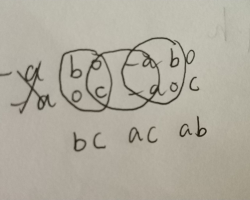 -a b o -a b o
-a o c -a o c
bc ac ab